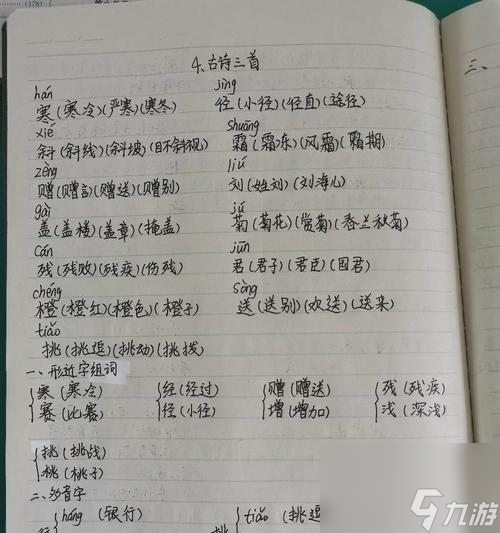 (178)
三、
4.古诗三首
hán jìng
寒(寒冷)(严寒)(寒冬) 径(小径)(径直)(途径)
xié shuāng
斜(斜线)(斜坡)(目不斜视) 霜(霜冻)(风霜)(霜期)
zèng liú
赠(赠言)(赠送)(赠别) 刘(姓刘)(刘海儿)
gài jú
盖(盖楼)(盖章)(掩盖) 菊(菊花)(赏菊)(春兰秋菊)
cán jūn
残(残败)(残疾)(伤残) 君(君子)(君臣)(国君)
chéng sòng
橙(橙红)(橙色)(橙子) 送(送别)(欢送)(送来)
tiǎo
挑(挑逗)(挑动)(挑拨)
一、形近字组词
寒(寒冷) 经(经过) 赠(赠送) 残(残疾)
赛(比赛) 径(小径) 增(增加) 浅(深浅)
挑(挑战)
桃(桃子)
二、多音字
háng(银行) tiǎo(挑逗
行 挑
九游